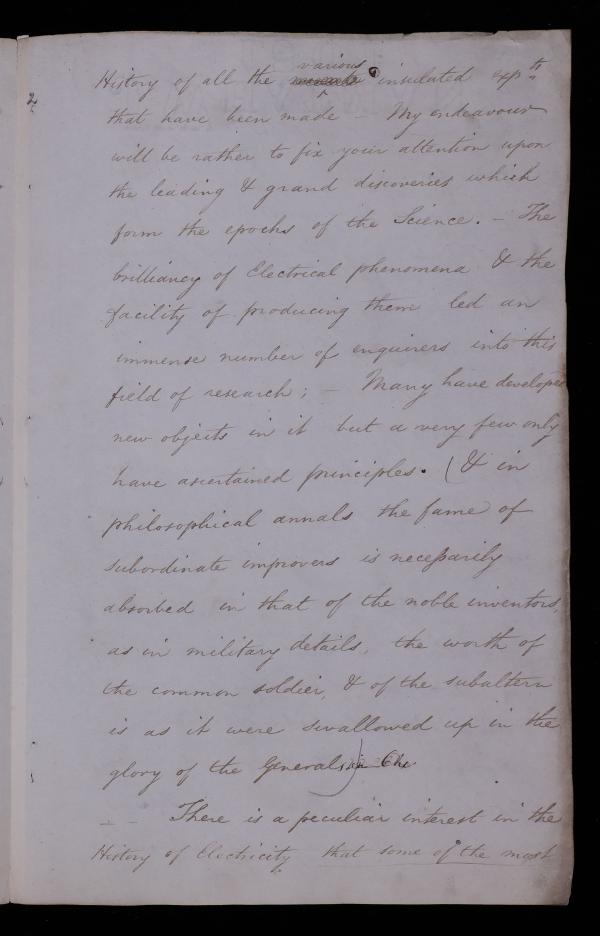 various
History of all the insulated expts
2
that have been made – My endeavour
will be rather to fix your attention upon
the leading & grand discoveries which
form the epochs of the Science. – The
brilliancy of Electrical phenomena & the
facility of producing them led an
immense number of enquirers into this
field of research; – Many have developed
new objects in it but a very few only
have ascertained principles. (& in
philosophical annals the fame of
subordinate improvers is necessarily
absorbed in that of the noble inventors,
as in military details, the worth of
the common soldier, & of the subaltern
is as it were swallowed up in the
glory of the General)
– – There is a peculiar interest in the
History of Electricity that some of the most